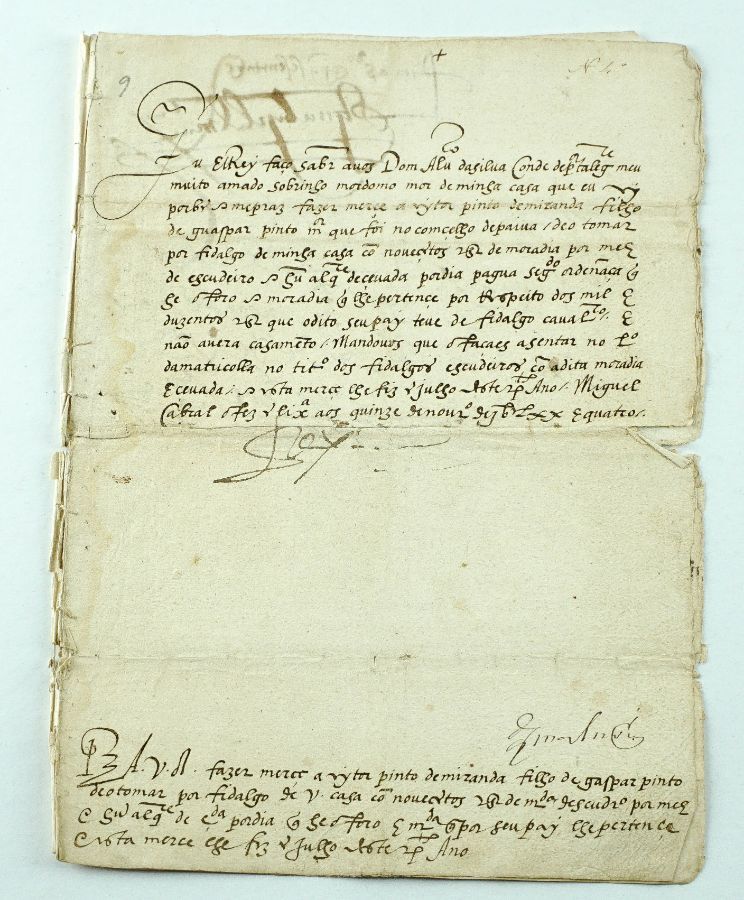 9
Eu ElRey faço saber a vos Dom Alu.ro dasilua Conde de portalegre meu
muito amado sobrinho mordomo mor de minha casa que eu ey
por bẽ e me praz fazer merce a vytor pinto de miranda filho
de guaspar pinto m.or que foi no comcelho de paiua / de o tomar
por fidalgo de minha casa cõ novecẽtos rs de moradia por mes
de escudeiro e hũ alq.re de ceuada por dia pagua seg.do ordenãça q̃
he o foro e moradia q̃ lhe pertence por respeito dos mil e
duzentos rs que o dito seu pay teue de fidalgo caual.ro / E
não auera casamẽto / Mandouos que o façaes asentar no L.o
da matricolla no tit.o dos fidalgos escudeiros cõ a dita moradia
e ceuada / e esta merce lhe fiz ẽ julho deste p.te Ano / Miguel
Cabral o fez ẽ lix.a aos quinze de nou.ro de jbᶜLxx e quatro /
Rey
Praz A. V. A. fazer merce a vytor pinto de miranda filho de gaspar pinto
de o tomar por fidalgo de V. casa cõ novecẽtos rs de m.da descudr.o por mes
e hũ alq.re de c.da por dia q̃ he o foro e m.da q̃ por seu pay lhe pertence
e esta merce lhe fez ẽ julho deste p.te Ano